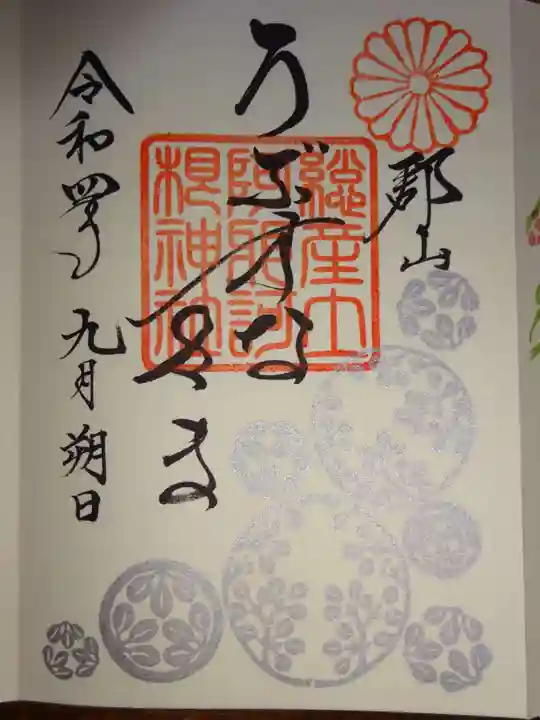 郡山
うぶすな
さま
總産土
阿邪訶
根神社
令和四年九月朔日